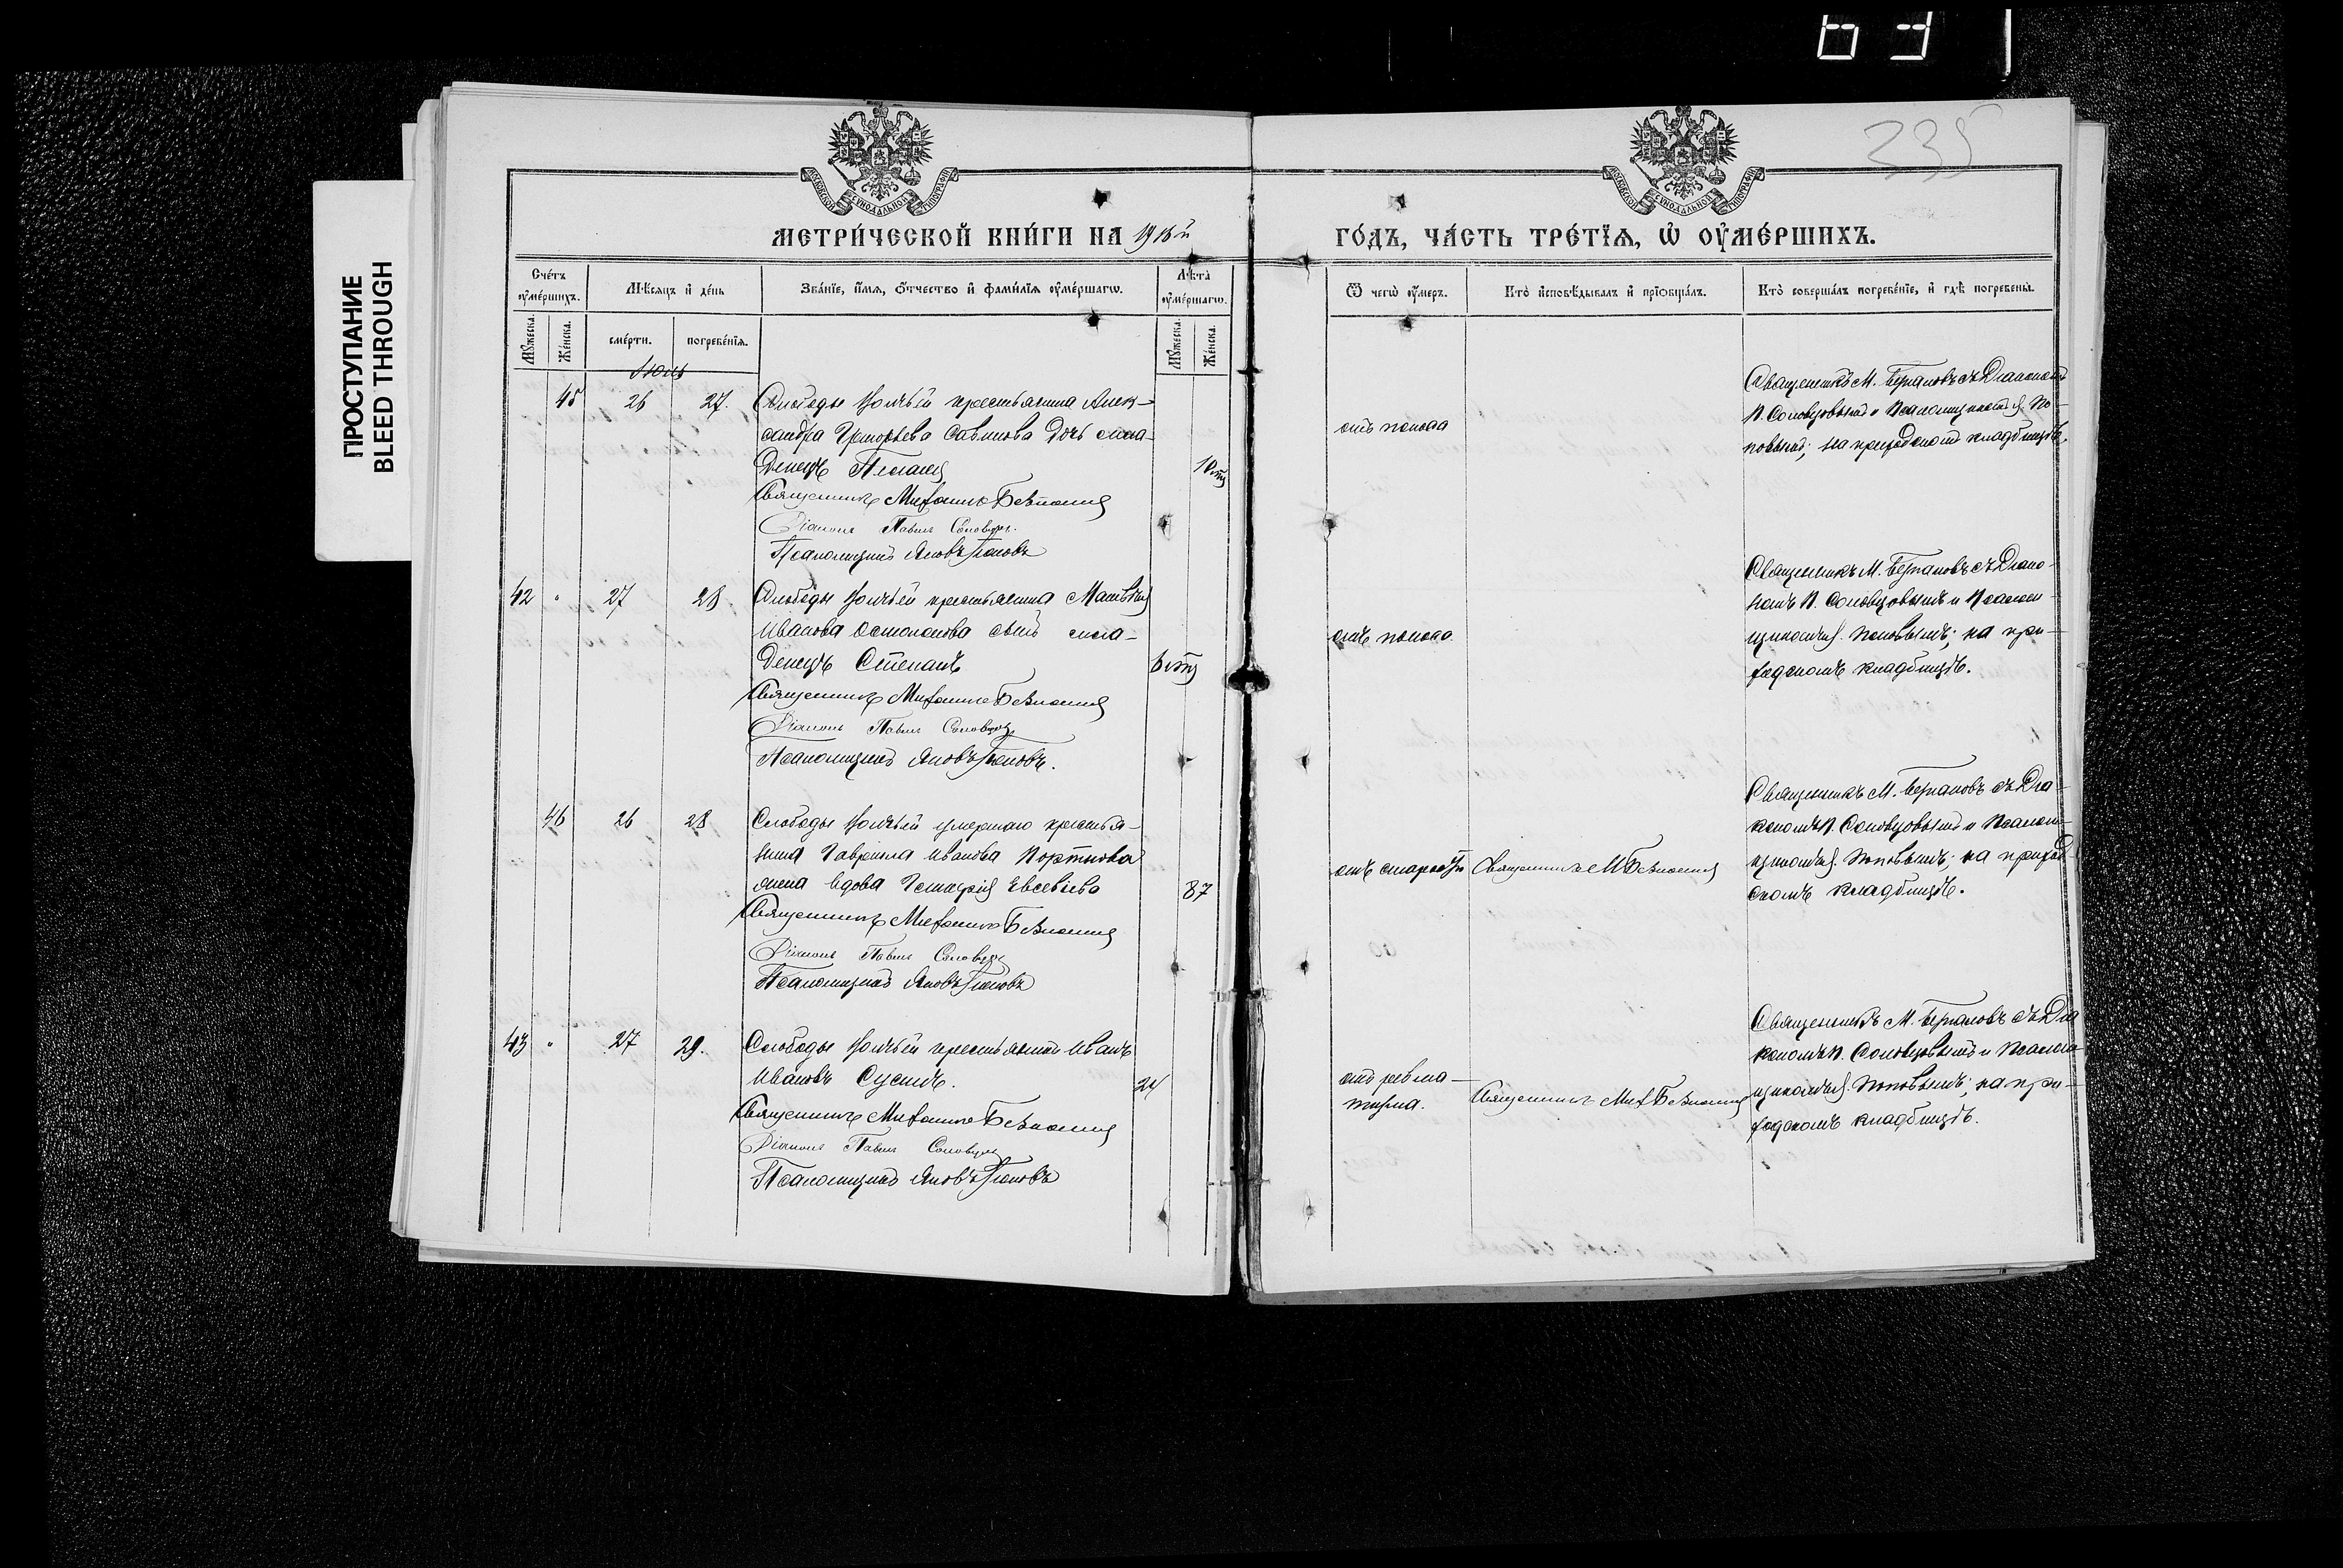 ПРОСТУПАНИЕ
BLEED THROUGH
235
МЕТРИ́ЧЕСКОЙ КНИ́ГИ НА 1916й
ГО́ДЪ, ЧА́СТЬ ТРЕ́ТЇѦ, Ѡ ОУМЕ́РШИХЪ.
Сче́тъ оумершихъ.
Мѣсяцъ и день
Званїе, имя, отчество и фамилїя оумершагѡ.
Лѣта оумершагѡ.
Мужеска.
Женска.
смерти.
погребенїя.
Мужеска.
Женска.
Ѿ чегѡ оумеръ.
Кто исповѣдывалъ и прїобщалъ.
Кто совершалъ погребенїе, и гдѣ погребены.
Июль
45 26 27. Слободы крестьянина Алек-
сандра Григорьева Савинова дочь мла-
денецъ Пелагея
Священникъ Михаилъ
Діаконъ Павелъ Соловцовъ.
Псаломщикъ Яковъ Поповъ
отъ поноса
Священникъ М. съ Діакономъ
П. Соловцовымъ и Псаломщикомъ Я. По-
повымъ; на приходскомъ кладбищѣ.
42 " 27 28 Слободы крестьянина Матвѣя
Иванова сынъ мла-
денецъ Стефанъ
Священникъ Михаилъ
Діаконъ Павелъ Соловцовъ
Псаломщикъ Яковъ Поповъ.
отъ поноса
Священникъ М. съ Діако-
номъ П. Соловцовымъ и Псалом-
щикомъ Я. Поповымъ; на при-
ходскомъ кладбищѣ.
46 26 28 Слободы умершаго крестья-
нина Гавриила Иванова Портнова
жена вдова Евсевіева
87
Священникъ Михаилъ
Діаконъ Павелъ Соловцовъ
Псаломщикъ Яковъ Поповъ
отъ старости
Священникъ М.
Священникъ М. съ Діа-
кономъ П. Соловцовымъ и Псалом-
щикомъ Я. Поповымъ; на приход-
скомъ кладбищѣ.
43 " 27 29. Слободы крестьянинъ Иванъ
Ивановъ Сусинъ.
24
Священникъ Михаилъ
Діаконъ Павелъ Соловцовъ
Псаломщикъ Яковъ Поповъ
отъ ревма-
тизма.
Священникъ Мих.
Священникъ М. съ Діа-
кономъ П. Соловцовымъ и Псалом-
щикомъ Я. Поповымъ; на при-
ходскомъ кладбищѣ.